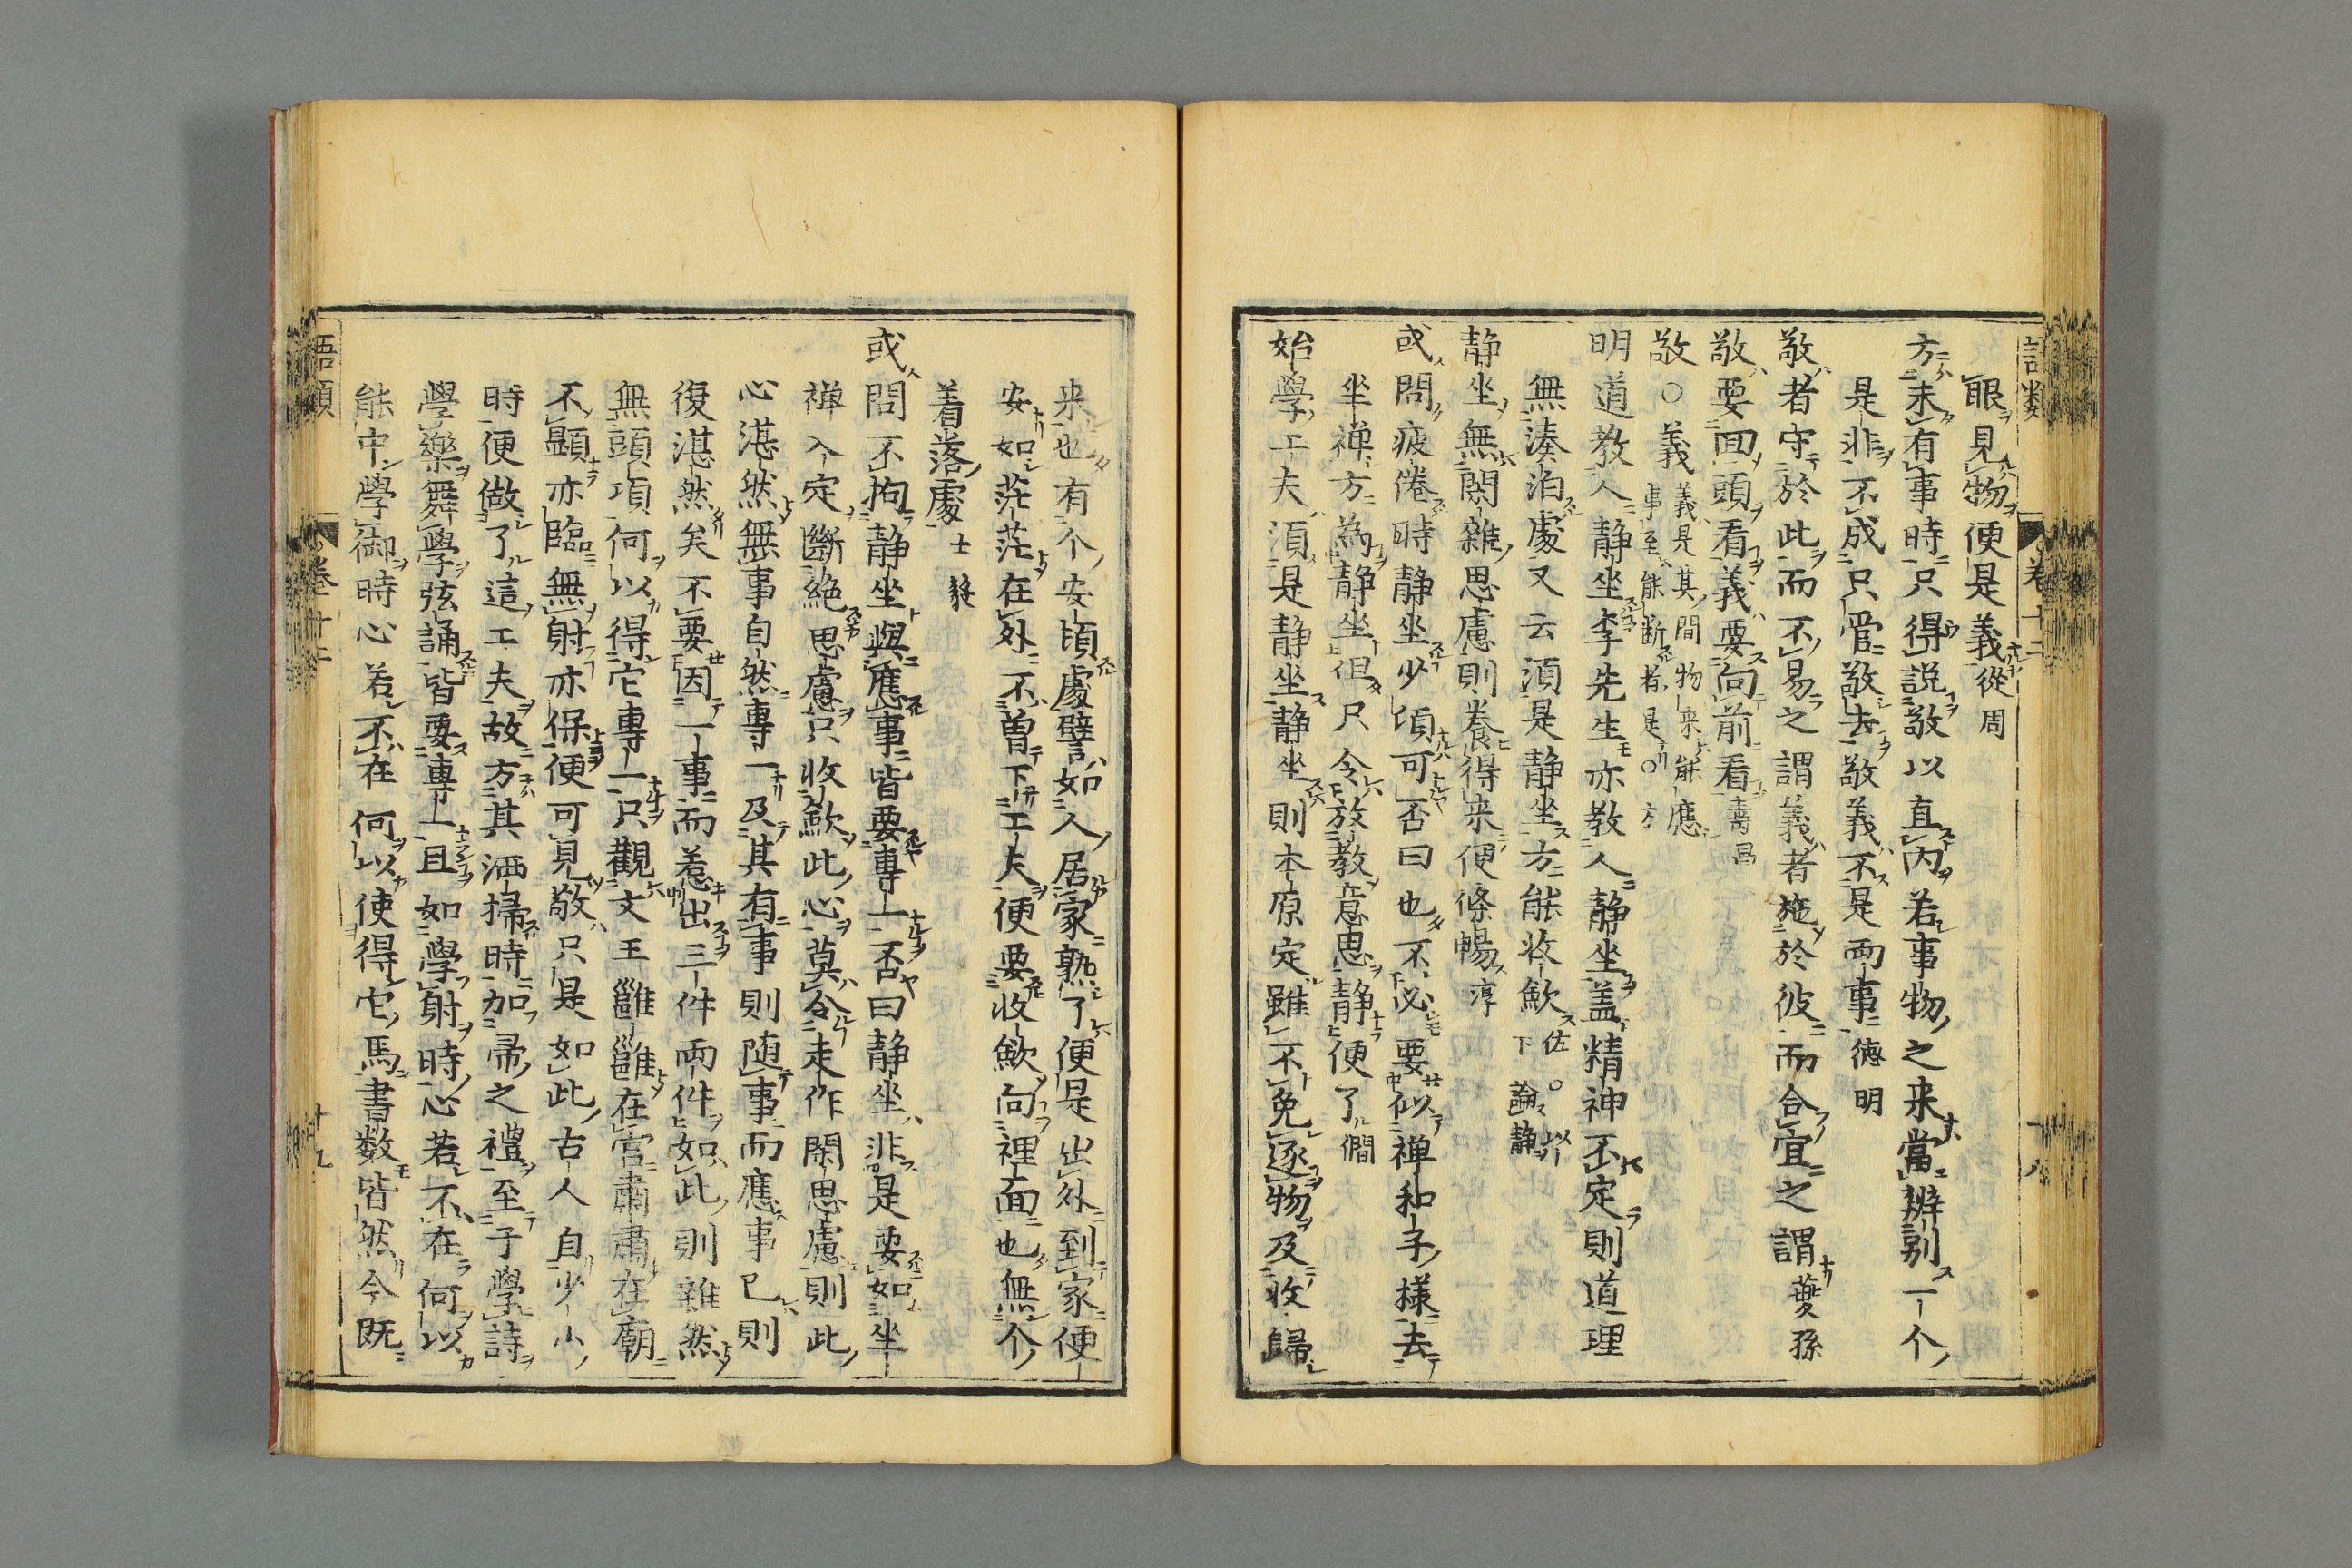 語類
卷十二
十八
眼見物便是義從周
方未有事時只得說敬以直內若事物之来當辨别一个
是非不成只管敬去敬義不是兩事德明
敬者守於此而不易之謂義者施於彼而合宜之謂䕫孫
敬要回頭看義要向前看壽昌
敬〇義義是其間物来能應
事至能断者是〇方
明道教人静坐李先生亦教人静坐盖精神不定則道理
無湊泊處又云須是静坐方能收歛佐〇以
下論静
静坐無閑雜思慮則養得来便條暢淳
或問疲倦時静坐少頃可否曰也不必要似禅和子様去
坐禅方為静坐但只令放教意思静便了僴
始學工夫須是静坐静坐則本原定雖不免逐物及收歸
来也有个安頓處譬如人居家熟了便是出外到家便
安如茫茫在外不曽下工夫便要收歛向裡面也無个
着落處士毅
或問不拘静坐與應事皆要專一否曰静坐非是要如坐
禅入定斷絶思慮只收歛此心莫令走作閑思慮則此
心湛然無事自然專一及其有事則随事而應事已則
復湛然矣不要因一事而惹出三件兩件如此則雜然
無頭項何以得它專一只觀文王雝雝在宮肅肅在廟
不顯亦臨無射亦保便可見敬只是如此古人自少小
時便做了這工夫故方其洒掃時加帚之禮至子學詩
學樂舞學弦誦皆要專一且如學射時心若不在何以
能中學御時心若不在何以使得它馬書数皆然今既
語類
卷十二
十九